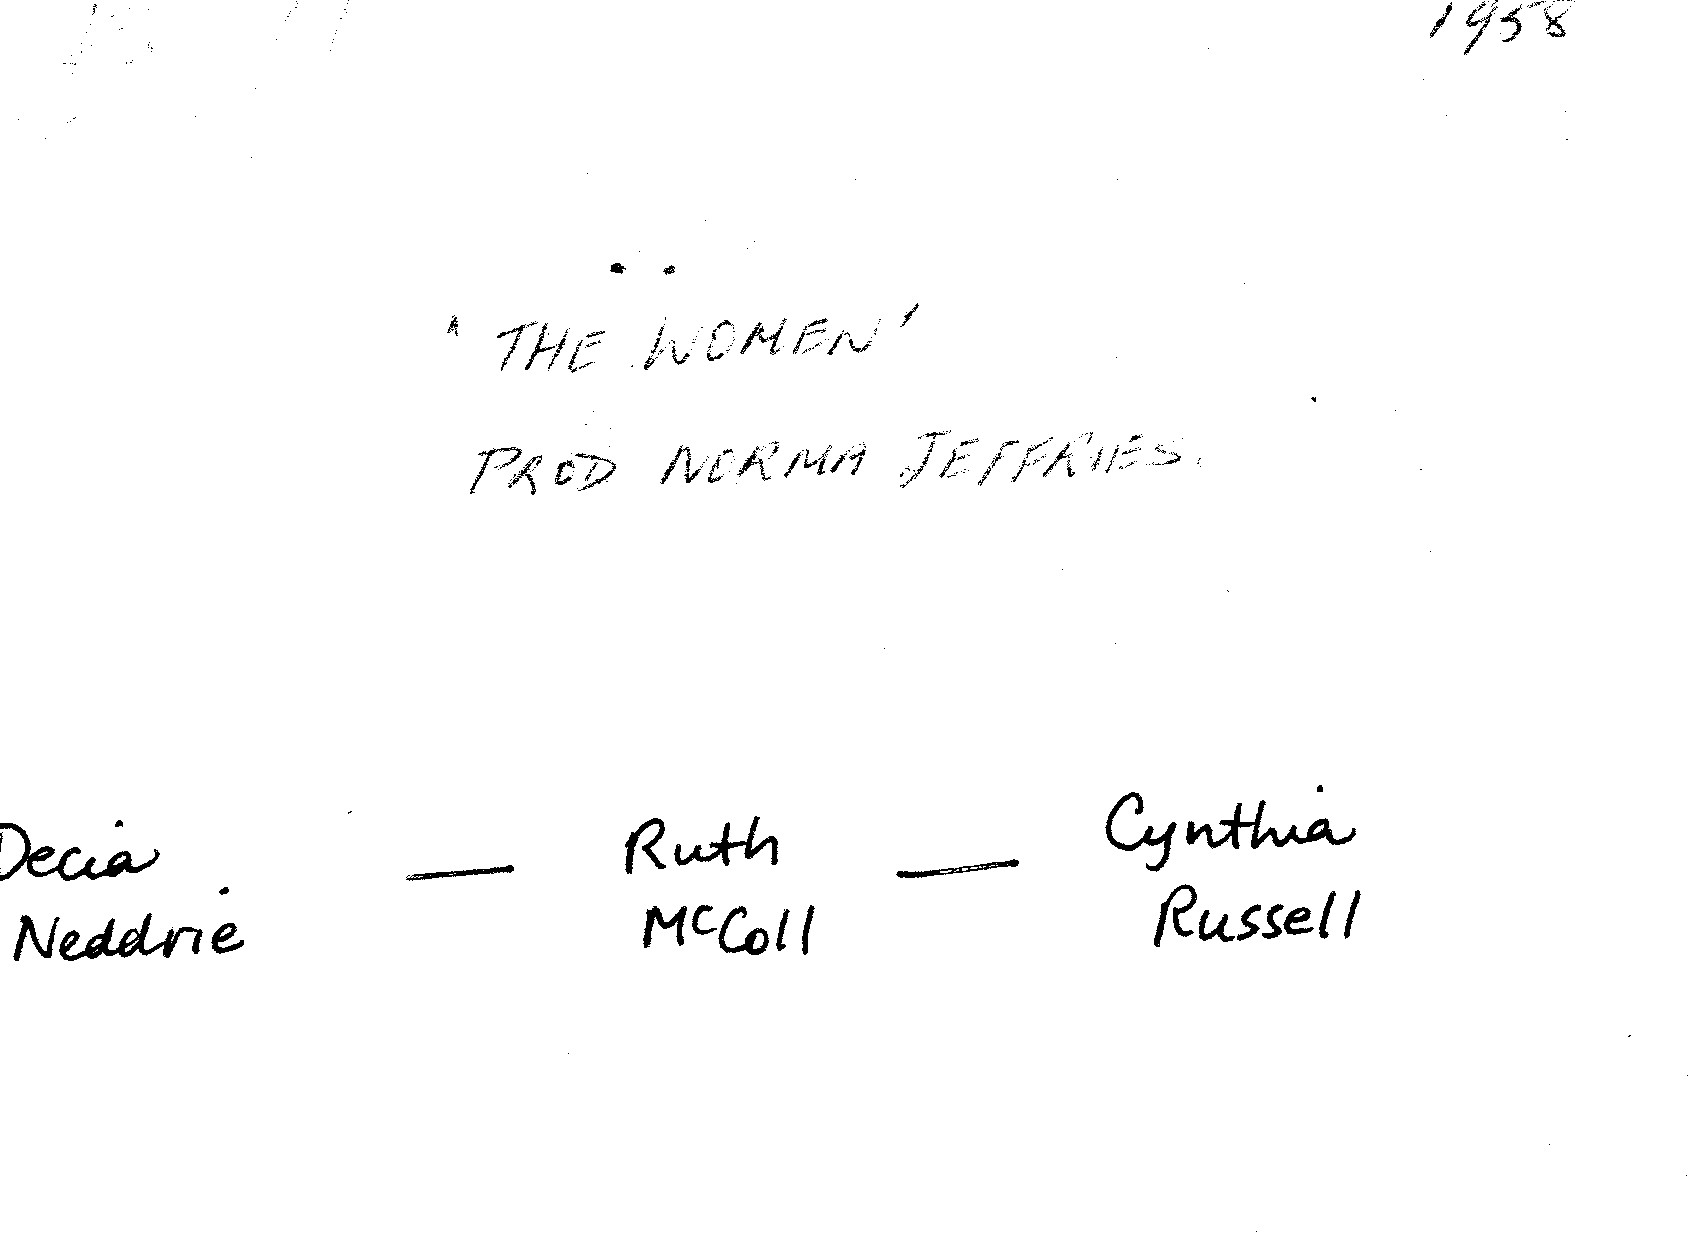 1958
'THE WOMEN'
PROD NORMA JEFFRIES.
Decia — Ruth — Cynthia
Neddrie McColl Russell